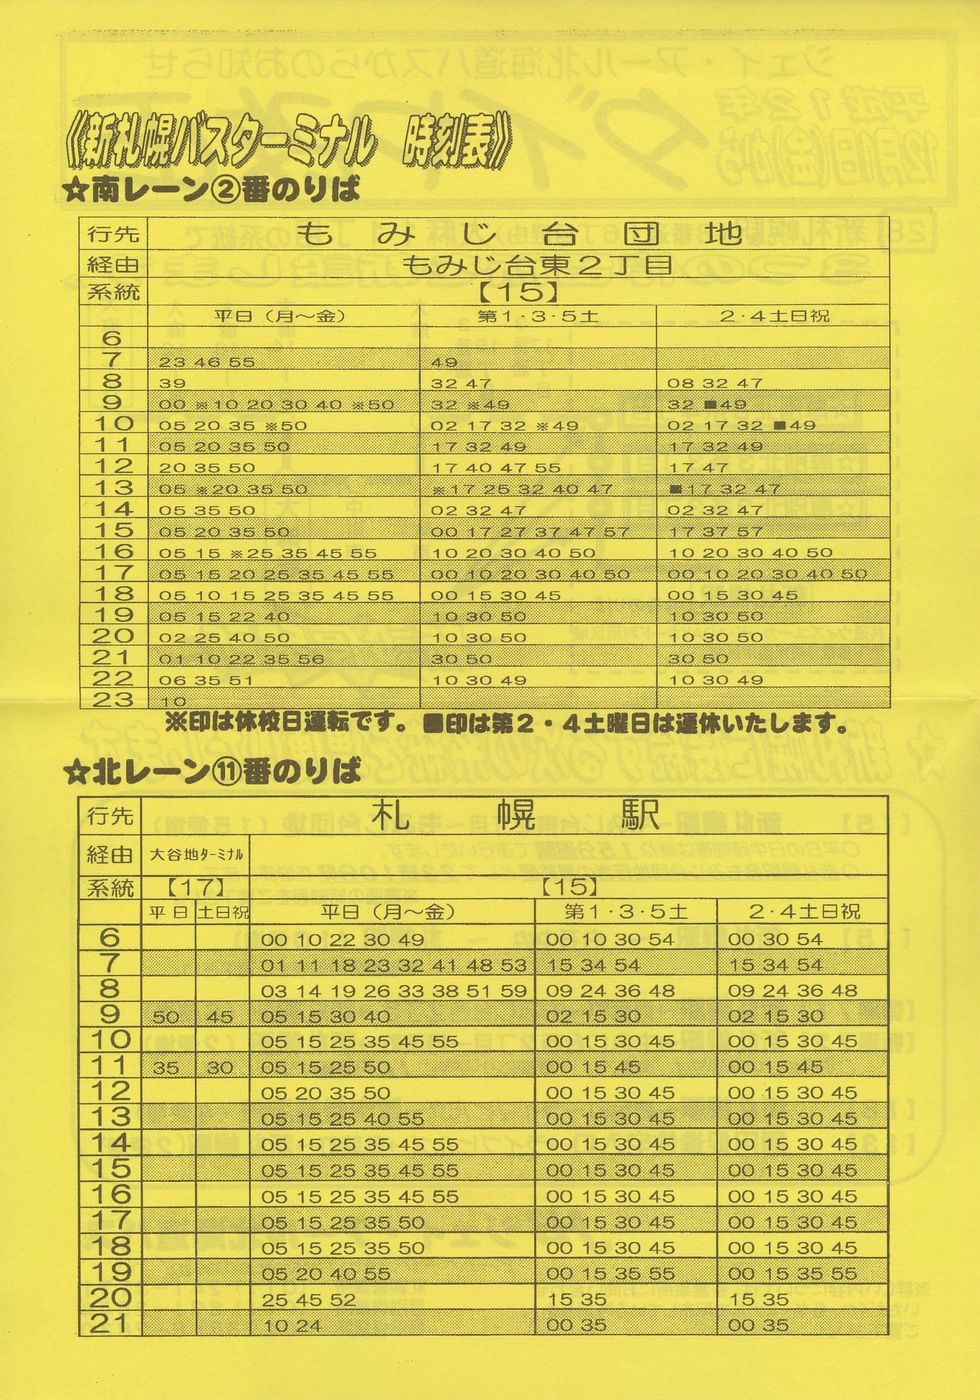 《新札幌バスターミナル 時刻表》
☆南レーン②番のりば
行先 もみじ台団地
経由 もみじ台東2丁目
系統 【15】
平日(月～金) 第1・3・5土 2・4土日祝
6
7 23 46 55 49
8 39 32 47 08 32 47
9 00 ※10 20 30 40 ※50 32 ※49 32 ■49
10 05 20 35 ※50 02 17 32 ※49 02 17 32 ■49
11 05 20 35 50 17 32 49 17 32 49
12 20 35 50 17 40 47 55 17 47
13 05 ※20 35 50 ※17 25 32 40 47 ■17 32 47
14 05 35 50 02 32 47 02 32 47
15 05 20 35 50 00 17 27 37 47 57 17 37 57
16 05 15 ※25 35 45 55 10 20 30 40 50 10 20 30 40 50
17 05 15 20 25 35 45 55 00 10 20 30 40 50 00 10 20 30 40 50
18 05 10 15 25 35 45 55 00 15 30 45 00 15 30 45
19 05 15 22 40 10 30 50 10 30 50
20 02 25 40 50 10 30 50 10 30 50
21 01 10 22 35 56 30 50 30 50
22 06 35 51 10 30 49 10 30 49
23 10
※印は休校日運転です。■印は第2・4土曜日は運休いたします。
☆北レーン⑪番のりば
行先 札幌駅
経由 大谷地ターミナル
系統 【17】 【15】
平日 土日祝 平日(月～金) 第1・3・5土 2・4土日祝
6 00 10 22 30 49 00 10 30 54 00 30 54
7 01 11 18 23 32 41 48 53 15 34 54 15 34 54
8 03 14 19 26 33 38 51 59 09 24 36 48 09 24 36 48
9 50 45 05 15 30 40 02 15 30 02 15 30
10 05 15 25 35 45 55 00 15 30 45 00 15 30 45
11 35 30 05 15 25 50 00 15 45 00 15 45
12 05 20 35 50 00 15 30 45 00 15 30 45
13 05 15 25 40 55 00 15 30 45 00 15 30 45
14 05 15 25 35 45 55 00 15 30 45 00 15 30 45
15 05 15 25 35 45 55 00 15 30 45 00 15 30 45
16 05 15 25 35 45 55 00 15 30 45 00 15 30 45
17 05 15 25 35 50 00 15 30 45 00 15 30 45
18 05 15 25 35 50 00 15 30 45 00 15 30 45
19 05 20 40 55 00 15 35 55 00 15 35 55
20 25 45 52 15 35 15 35
21 10 24 00 35 00 35